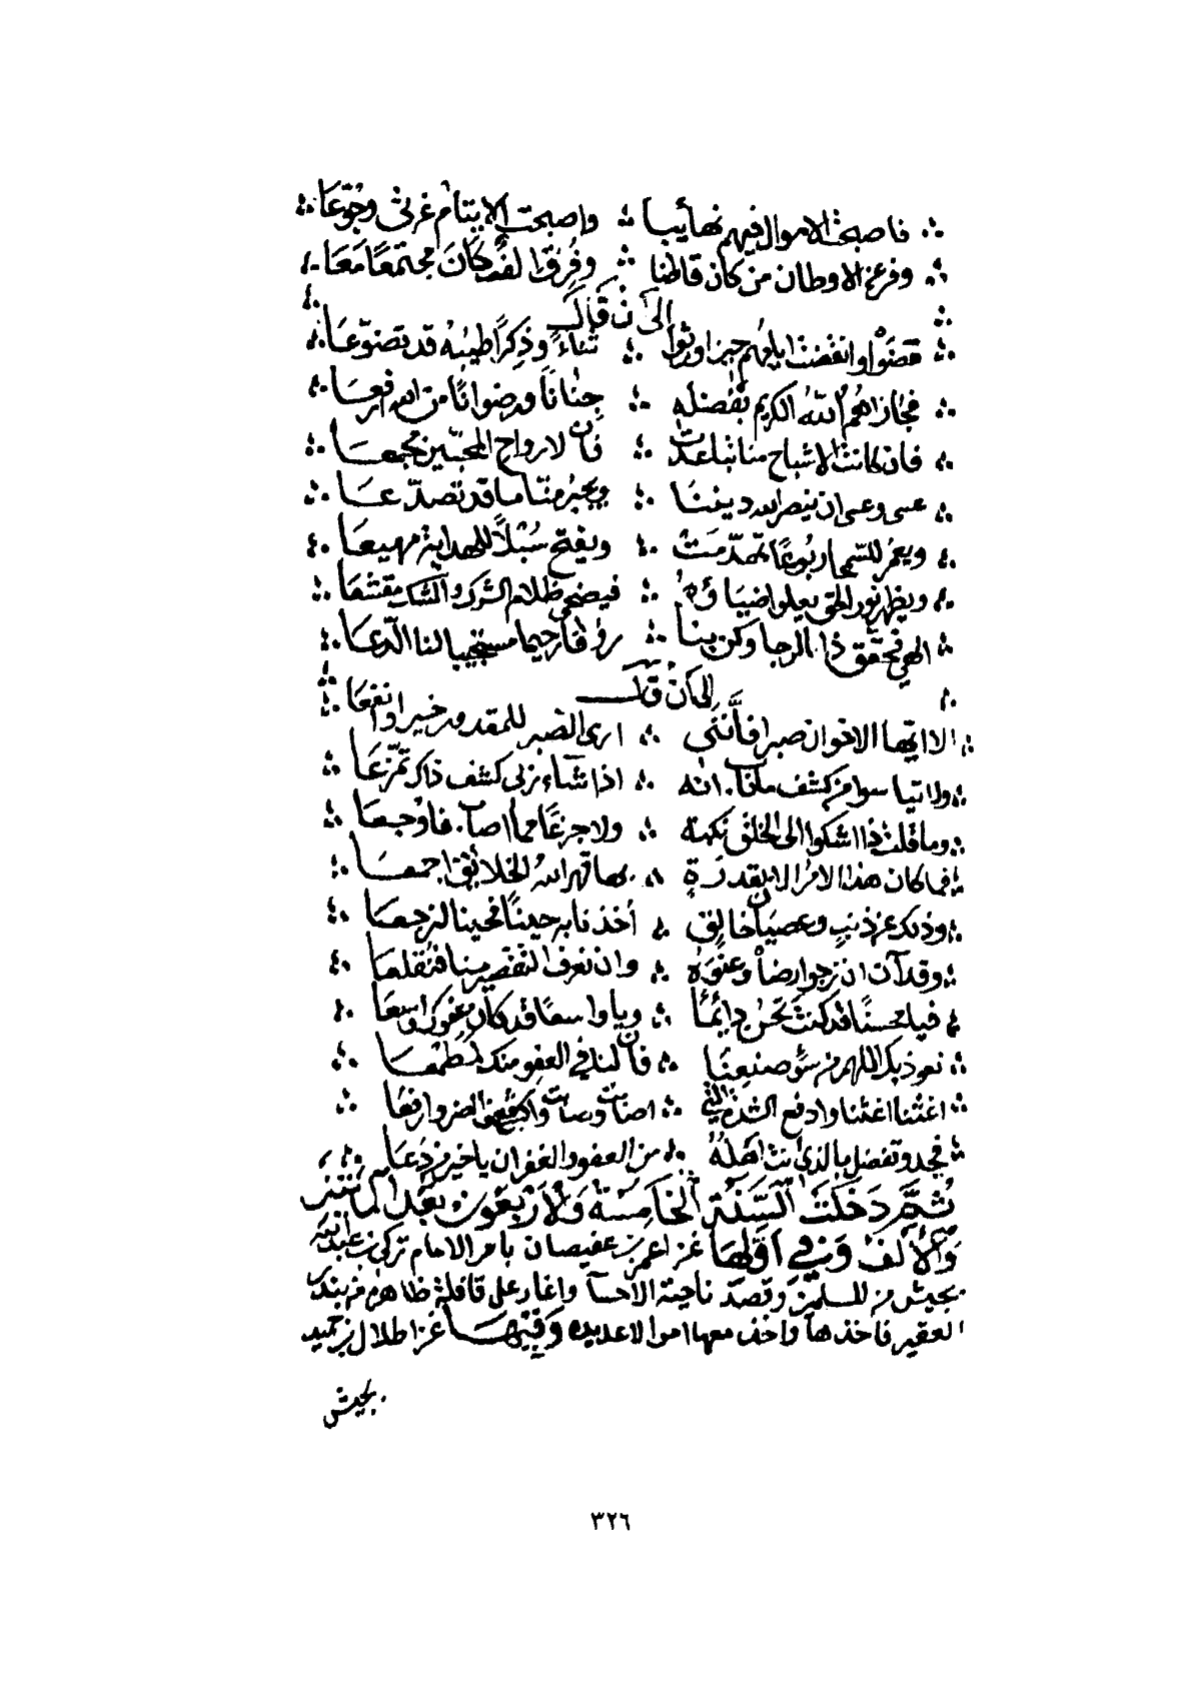 فاصبحت الاموال فيهم نهائبا ؞ واصبحت الايتام غرثى وجُوّعَا
وفر عن الاوطان من كان قاطنا ؞ وفُرِّق الفٌ كانَ مجتمعًا مَعَا
الى ان قال
قضَوْا وانقضت ايامهم حين اورثوا ؞ ثناءً وذِكرًا طيبُهُ قد تضوّعَا
فجازاهُمُ اللّهُ الكريم بفضله ؞ جنانًا ورضوانًا من الله ارفعَا
فان كانت الاشباح منا تباعدت ؞ فان لارواح المحبّين مجمعَا
عسى وعسى ان ينصر الله ديننَا ؞ ويجبُر منّا ما قد تصدّعَا
ويعمُر للسّمحا ربُوعًا تهدّمتْ ؞ ويفتحُ سُبْلاً للهداية مهيعَا
ويظهر نور الحق يعلوا ضياؤهُ ؞ فيضحى ظلام الشرك والشك مقشعَا
الهي فحقق ذا الرجا وكن بنا ؞ رؤفا رحيما مستجيبا لنا الدّعَا
الى ان قال
الا ايها الاخوان صبرا فأننى ؞ ارى الصبر للمقدور خيرا وانفعَا
ولا تيأسوا من كشف ما ناب انه ؞ اذا شاء ربى كشف ذاك تمزّعَا
وما قلت ذا اشكوا الى الخلق نكبة ؞ ولا جزعًا مما اصاب فاوجعَا
فما كان هذا الامرُ الا بقدرةٍ ؞ بها قهر اللهُ الخلائق اجمعَا
وذلك عن ذنبٍ وعصيان خالق ؞ أخذنا به حينًا فحينا لنرجعَا
وقد آن ان نرجوا رضاه وعفوَهُ ؞ وان نعرف التقصير منا فنُقلعَا
فيا محسنًا قد كنت تحسُن دائمًا ؞ ويا واسعًا قد كان عفوك واسعَا
نعوذ بك اللهم من سوء صنعِنَا ؞ فان لنا في العفو منك لمطمعَا
اغثنا اغثنا وادفع الشدة التي ؞ اصابت وصابت واكشف الضر وارفعَا
فجد وتفضل بالذى انت اهلهُ ؞ من العفو والغفران يا خير من دُعَا
ثُمَّ دَخَلَتْ السَّنَةُ الخَامِسَةُ وَالأرْبَعُونَ بَعْدَ المائتين
وَالأَلفْ وَفي اَوّلهَا غزا عمر بن عفيصان بامر الامام تركي بن عبدالله
بجيش من المسلمين وقصد ناحية الاحسا واغار على قافلة ظاهرة من بندر
العقير فاخذها واخذ معها اموالا عديده وَفيْهَا غزا طلال بن حميد
بجيش
٣٢٦